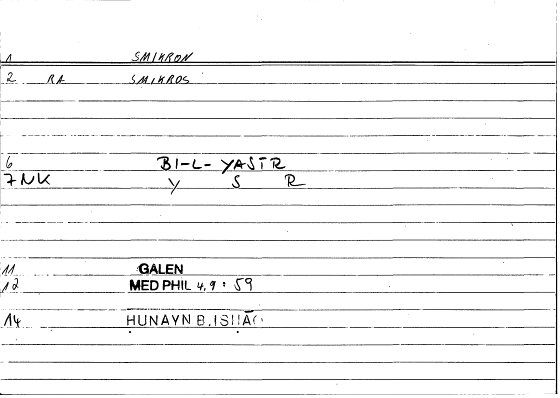 1 SMIKRON
2 RA SMIKROS
6 BI-L-YASĪR
7NK Y S R
11 GALEN
12 MED PHIL 4,9 : 59
14 ḤUNAYN B. ISḤĀQ